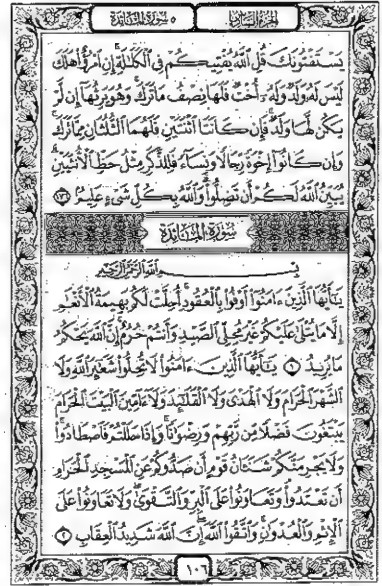 الجزء السادس
٥ سورة المائدة
يَسْتَفْتُونَكَ قُلِ ٱللَّهُ يُفْتِيكُمْ فِى ٱلْكَلَٰلَةِ إِنِ ٱمْرُؤٌا۟ هَلَكَ
لَيْسَ لَهُۥ وَلَدٌ وَلَهُۥٓ أُخْتٌ فَلَهَا نِصْفُ مَا تَرَكَ وَهُوَ يَرِثُهَآ إِن لَّمْ
يَكُن لَّهَا وَلَدٌ فَإِن كَانَتَا ٱثْنَتَيْنِ فَلَهُمَا ٱلثُّلُثَانِ مِمَّا تَرَكَ
وَإِن كَانُوٓا۟ إِخْوَةً رِّجَالًا وَنِسَآءً فَلِلذَّكَرِ مِثْلُ حَظِّ ٱلْأُنثَيَيْنِ
يُبَيِّنُ ٱللَّهُ لَكُمْ أَن تَضِلُّوا۟ وَٱللَّهُ بِكُلِّ شَىْءٍ عَلِيمٌۢ ١٧٦
سورة المائدة
بِسْمِ ٱللَّهِ ٱلرَّحْمَٰنِ ٱلرَّحِيمِ
يَٰٓأَيُّهَا ٱلَّذِينَ ءَامَنُوٓا۟ أَوْفُوا۟ بِٱلْعُقُودِ أُحِلَّتْ لَكُم بَهِيمَةُ ٱلْأَنْعَٰمِ
إِلَّا مَا يُتْلَىٰ عَلَيْكُمْ غَيْرَ مُحِلِّى ٱلصَّيْدِ وَأَنتُمْ حُرُمٌ إِنَّ ٱللَّهَ يَحْكُمُ
مَا يُرِيدُ ١ يَٰٓأَيُّهَا ٱلَّذِينَ ءَامَنُوا۟ لَا تُحِلُّوا۟ شَعَٰٓئِرَ ٱللَّهِ وَلَا
ٱلشَّهْرَ ٱلْحَرَامَ وَلَا ٱلْهَدْىَ وَلَا ٱلْقَلَٰٓئِدَ وَلَآ ءَآمِّينَ ٱلْبَيْتَ ٱلْحَرَامَ
يَبْتَغُونَ فَضْلًا مِّن رَّبِّهِمْ وَرِضْوَٰنًا وَإِذَا حَلَلْتُمْ فَٱصْطَادُوا۟
وَلَا يَجْرِمَنَّكُمْ شَنَـَٔانُ قَوْمٍ أَن صَدُّوكُمْ عَنِ ٱلْمَسْجِدِ ٱلْحَرَامِ
أَن تَعْتَدُوا۟ وَتَعَاوَنُوا۟ عَلَى ٱلْبِرِّ وَٱلتَّقْوَىٰ وَلَا تَعَاوَنُوا۟ عَلَى
ٱلْإِثْمِ وَٱلْعُدْوَٰنِ وَٱتَّقُوا۟ ٱللَّهَ إِنَّ ٱللَّهَ شَدِيدُ ٱلْعِقَابِ ٢
١٠٦